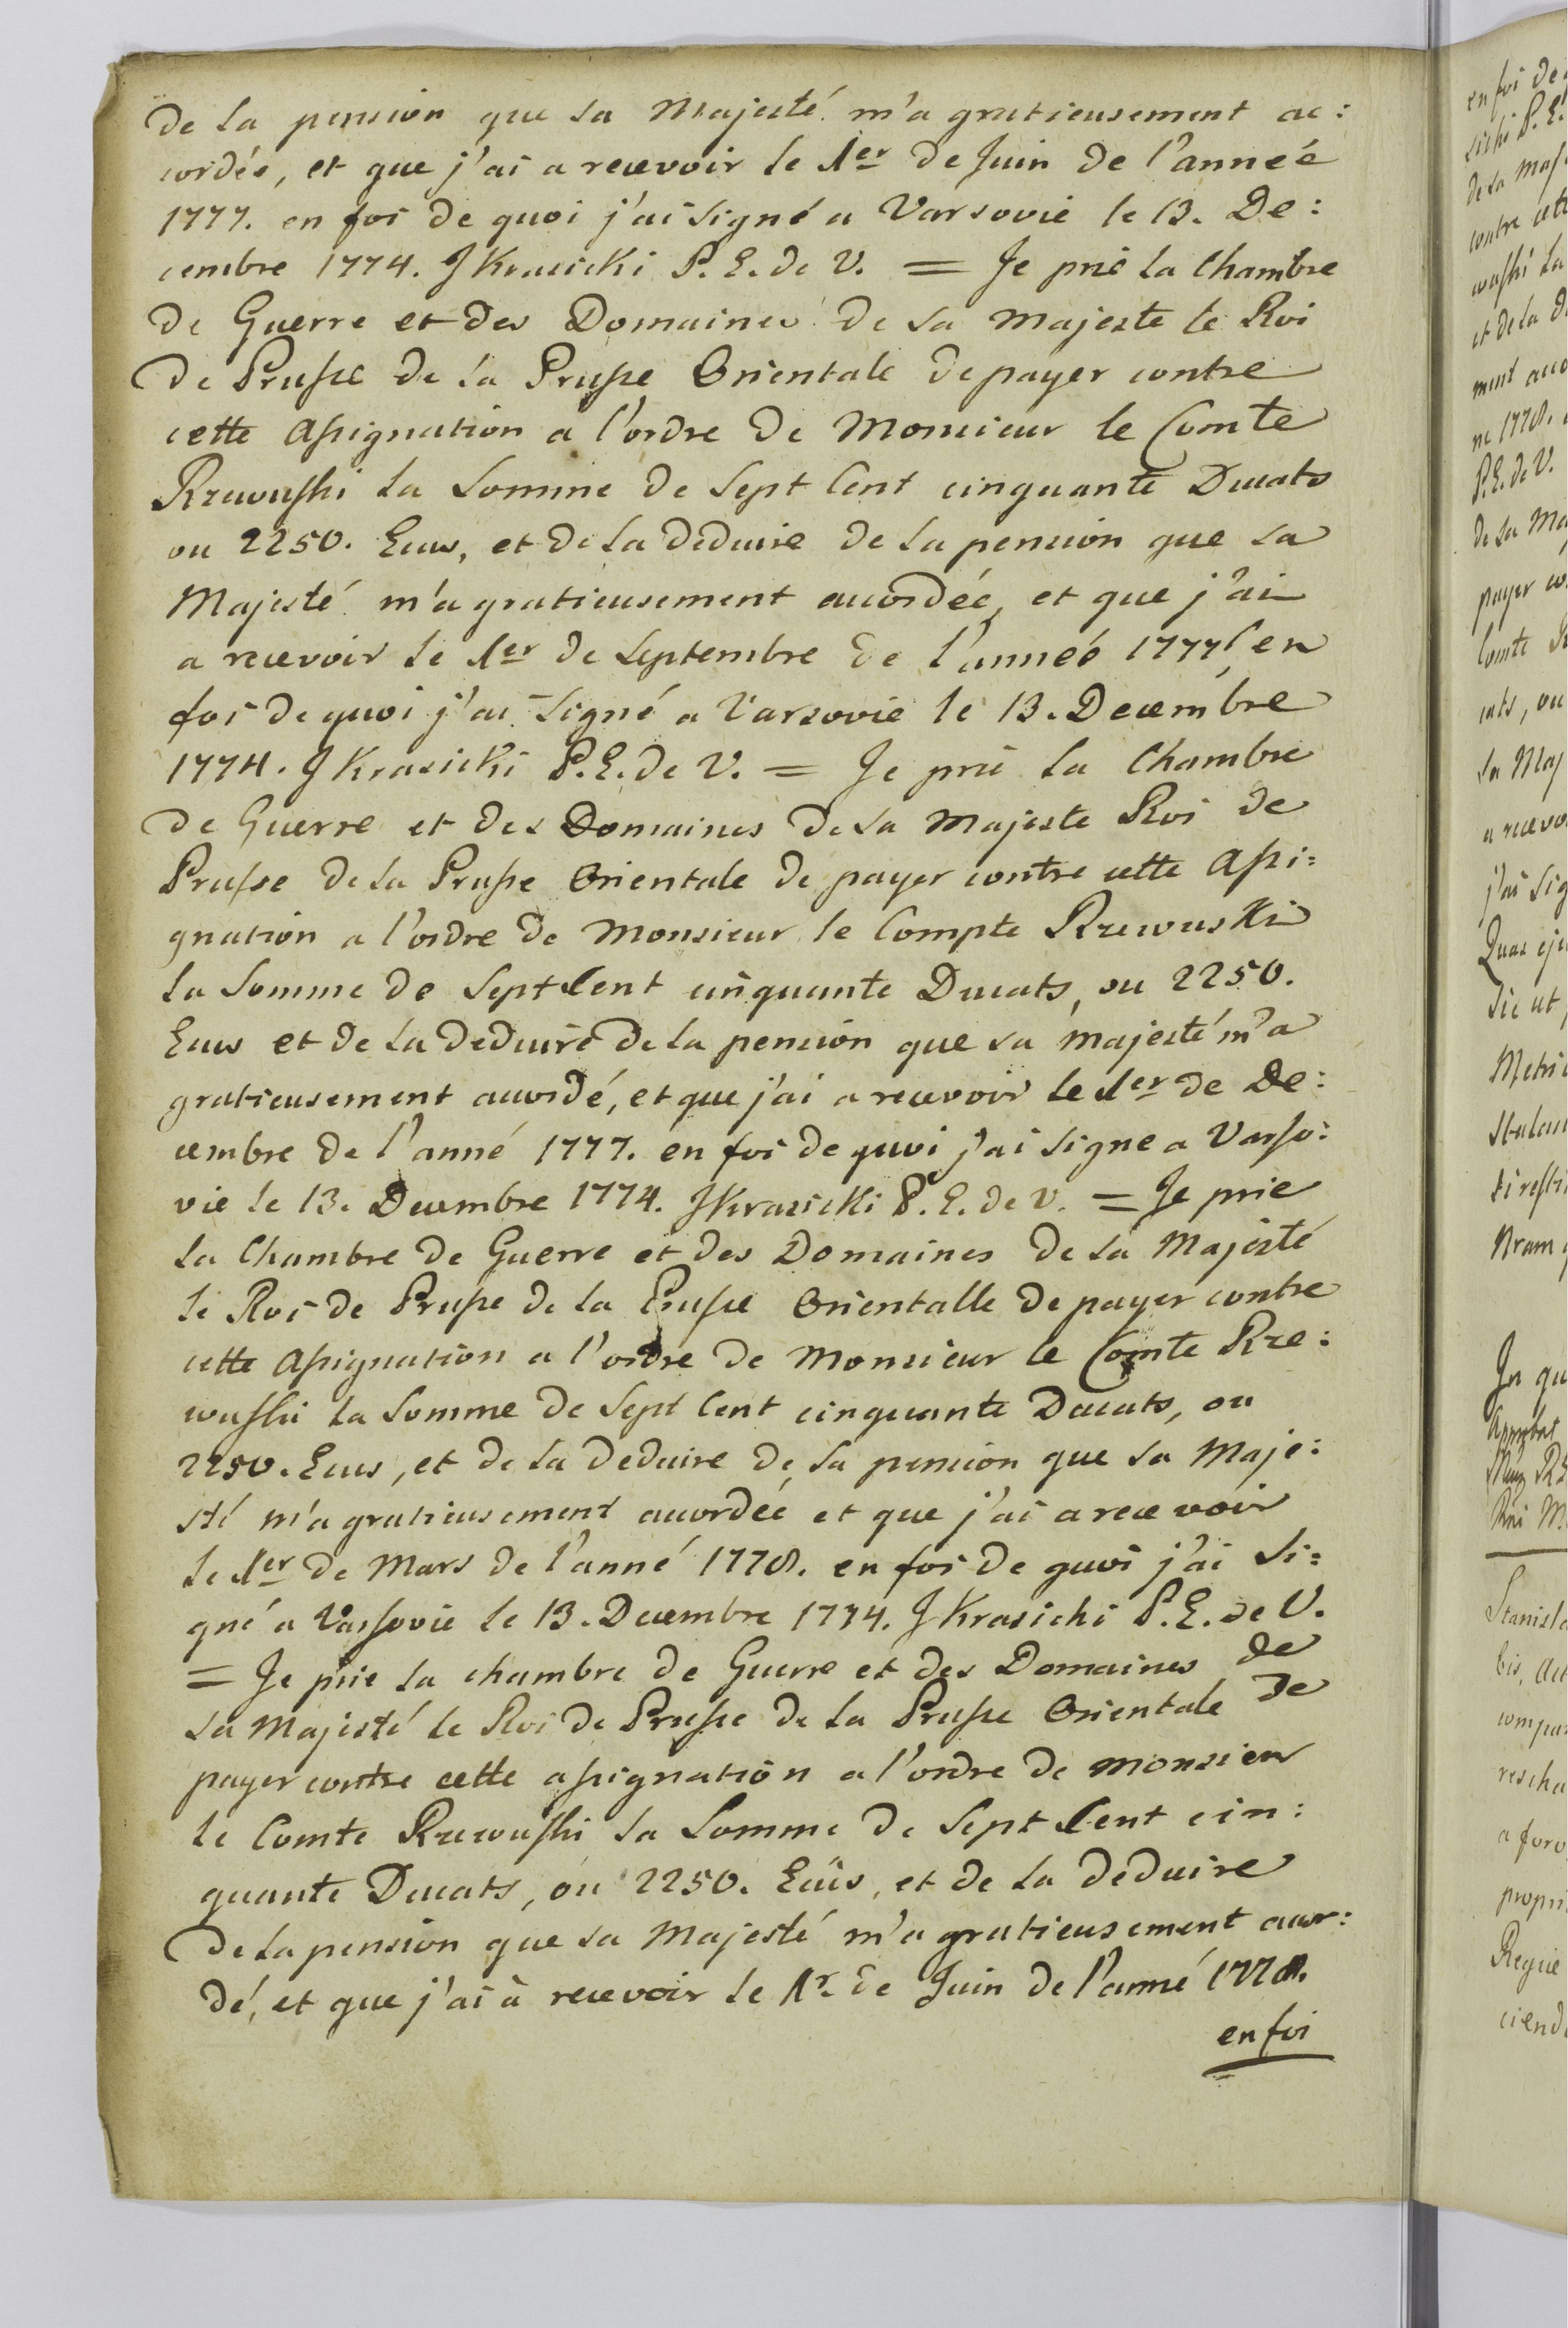 de la pension que sa Majesté m'a gratieusement ac:
cordée, et que j'ai a recevoir le 1er de Juin de l'anneé
1777. en foi de quoi j'ai signé a Varsovie le 13. De:
cembre 1774. J Krasicki P. E. de V. = Je prie la Chambre
de Guerre et des Domaines de sa Majeste le Roi
de Prusse de la Prusse Orientale de payer contre
cette Assignation a l'ordre de Monsieur le Comte
Rzewuski la Somme de Sept Cent cinquante Ducats
ou 2250. Ecus, et de la deduire de la pension que sa
Majesté m'a gratieusement accordée, et que j'ai
a recevoir le 1er de Septembre de l'anneé 1777 en
foi de quoi j'ai Signé a Varsovie le 13. Decembre
1774. J Krasicki P. E. de V. = Je prie la Chambre
de Guerre et des Domaines de sa Majeste Roi de
Prusse de la Prusse Orientale de payer contre cette Assi=
gnation a l'ordre de Monsieur le Compte Rzewuski
la Somme de Sept Cent cinquante Ducats, ou 2250.
Ecus et de la deduire de la pension que sa majesté m'a
gratieusement accordé, et que j'ai a recevoir le 1er de De:
cembre de l'anné 1777. en foi de quoi j'ai signe a Varso:
vie le 13. Decembre 1774. J Krasicki P. E. de V. = Je prie
la Chambre de Guerre et des Domaines de sa Majesté
le Roi de Prusse de la Prusse Orientalle de payer contre
cette Assignation a l'ordre de Monsieur le Comte Rze:
wuski la Somme de Sept Cent cinquante Ducats, ou
2250. Ecus, et de la deduire de la pension que sa Maje:
sté m'a gratieusement accordée et que j'ai a recevoir
le 1er de Mars de l'anné 1778. en foi de quoi j'ai Si=
gné a Varsovie le 13. Decembre 1774. J Krasicki P. E. de V.
= Je prie la chambre de Guerre et des Domaines de
sa Majesté le Roi de Prusse de la Prusse Orientale de
payer contre cette assignation a l'ordre de monsieur
le Comte Rzewuski la Somme de Sept Cent cin:
quante Ducats, ou 2250. Ecus, et de la deduire
de la pension que sa Majesté m'a gratieusement accor:
dé, et que j'ai à recevoir le 1r. de Juin de l'anné 1778.
en foi
en foi de
sicki P. E.
de sa Maj
contre cette
wuski la
et de la d
ment acco
1778.
P. E. de V.
de sa Ma
payer co
Comte R
cats, ou
sa Maj
a recevo
j'ai Sig
Quae eju
Sic ut
Metri
Nram
In qu
Stanisl
bis, Act
a foro
propri